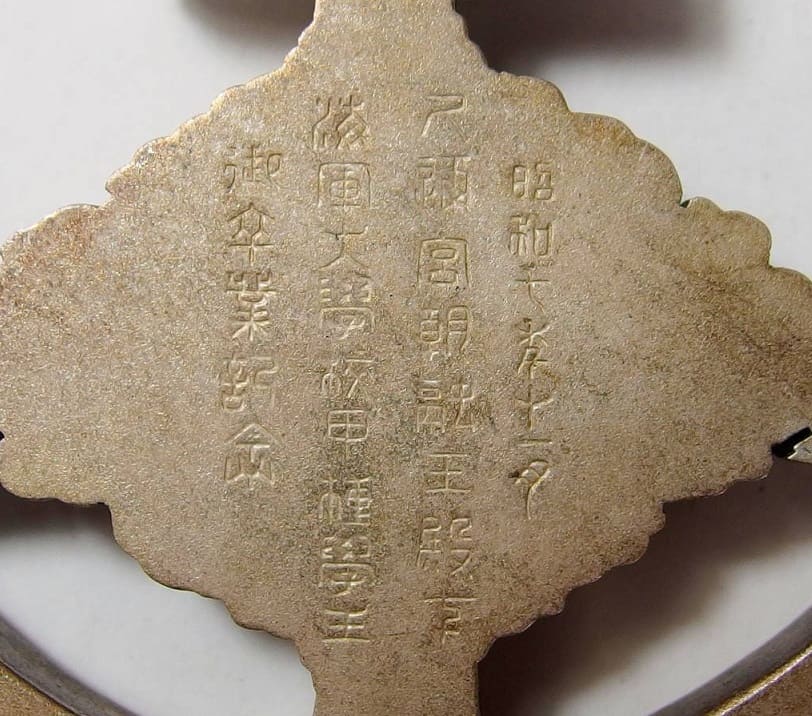 昭和七年十一月
久邇宮朝融王殿下
海軍大學校甲種學生
御卒業記念